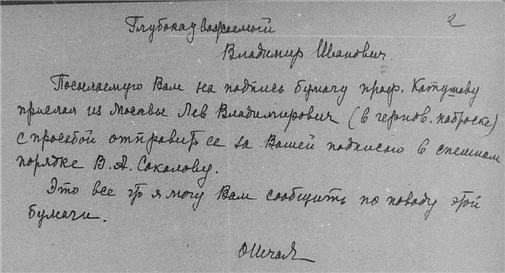 Глубокауважаемый 2
Владимир Иванович.
Посылаемую Вам на подпись бумагу проф. Катушеву
прислал из Москвы Лев Владимирович (в чернов. наброске)
с просьбой отправить ее за Вашей подписью в спешном
порядке В. А. Соколову.
Это все чт я могу Вам сообщить по поводу этой
бумаги.